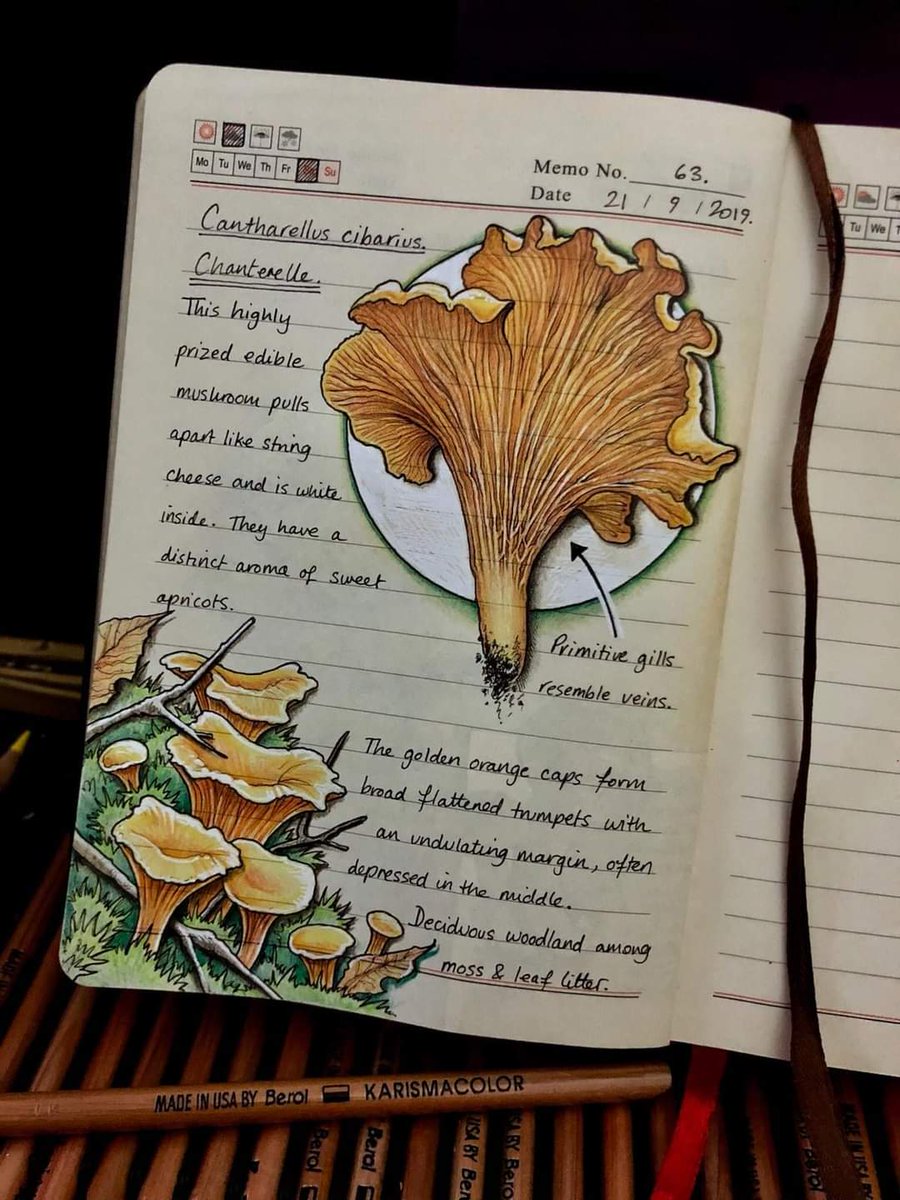 Mo Tu We Th Fr Su
Memo No. 63.
Date 21 / 9 / 2019.
Cantharellus cibarius.
Chanterelle.
This highly
prized edible
mushroom pulls
apart like string
cheese and is white
inside. They have a
distinct aroma of sweet
apricots.
Primitive gills
resemble veins.
The golden orange caps form
broad flattened trumpets with
an undulating margin, often
depressed in the middle.
Deciduous woodland among
moss & leaf litter.
Tu We
MADE IN USA BY Berol KARISMACOLOR
Berol
Berol
USA BY Ber